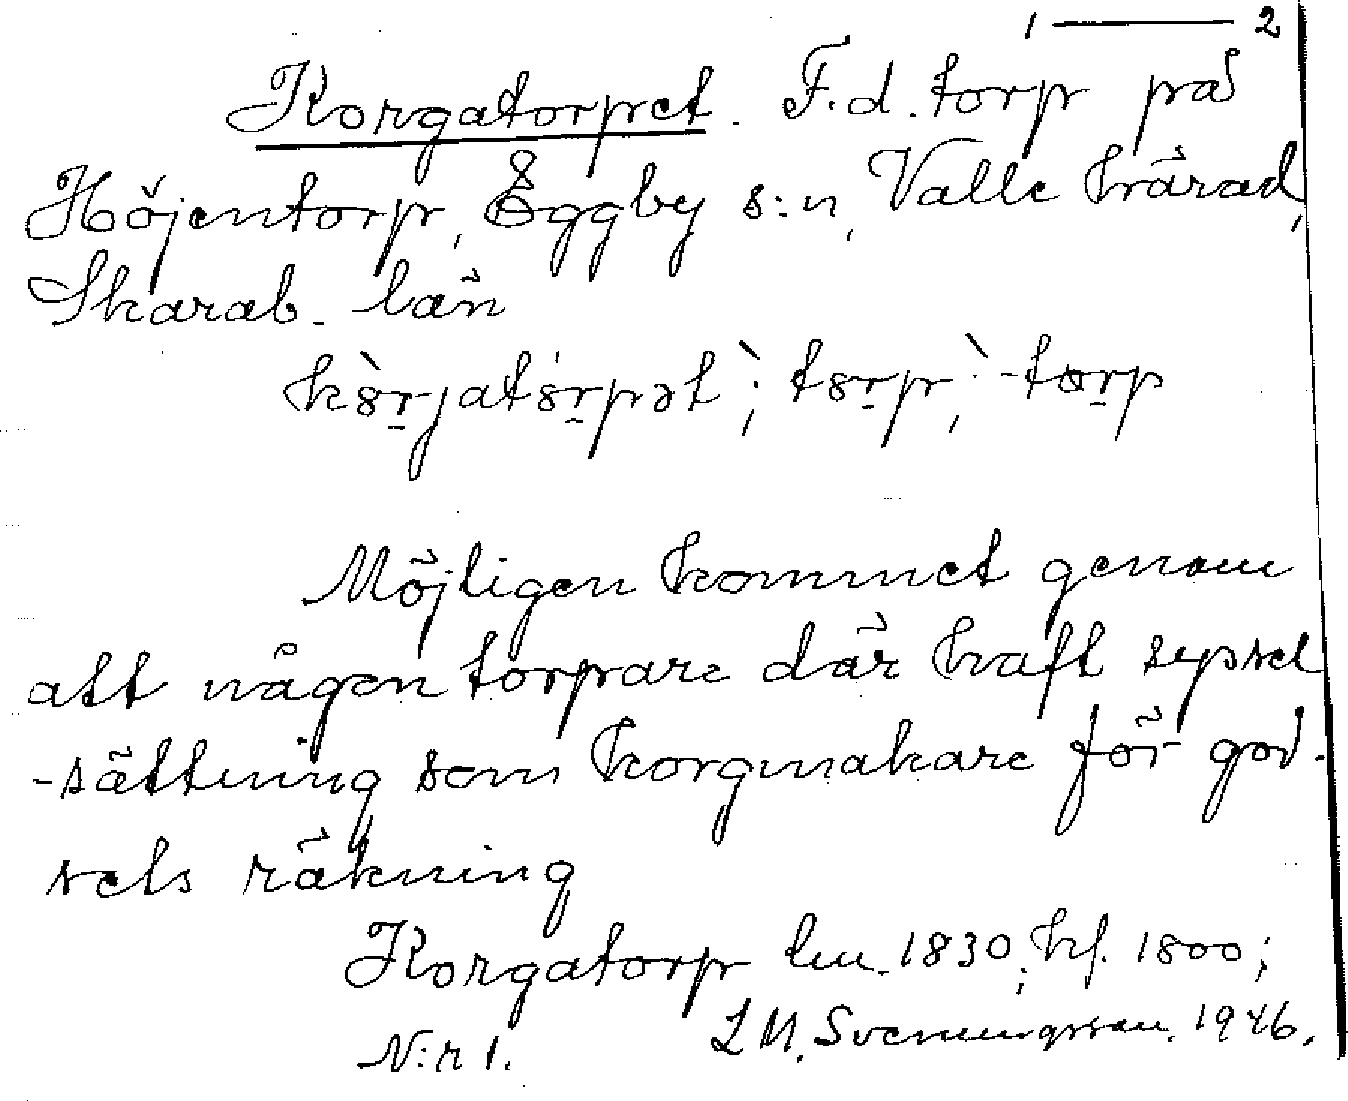 1 — 2
Korgatorpet. F.d. torp på
Höjentorp, Eggby s:n, Valle härad,
Skarab. län
kòrjatórpət `; torp, `; -tarp
Möjligen kommet genom
att någon torpare där haft syssel
-sättning som korgmakare för god-
sets räkning
Korgatorp lm. 1830; hf. 1800;
N:r 1. L M. Svenungsson. 1946.